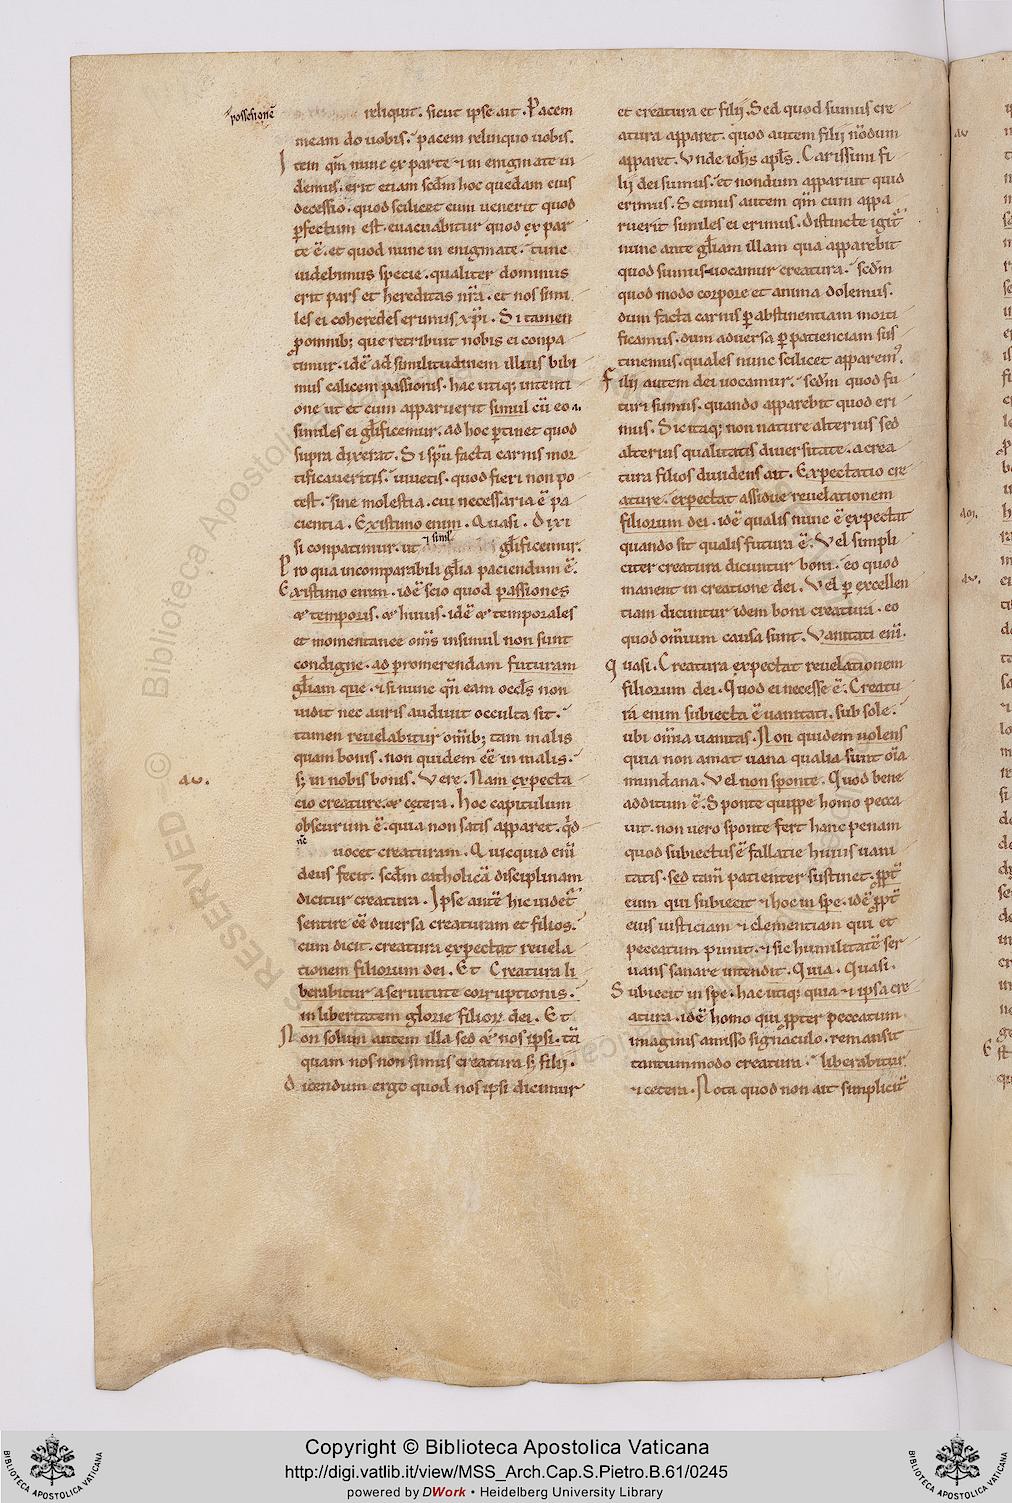 possesionē
reliquit. sicut ipse ait. Pacem
meam do uobis. pacem relinquo uobis.
Item qm̄ nunc ex parte ⁊ in enigmate ui
demus. erit etiam scdm̄ hoc quedam eius
decessio. quod scilicet cum uenerit quod
ꝑfectum est. euacuabitur quod ex par
te ē. et quod nunc in enigmate. tunc
uidebimus specie. qualiter dominus
erit pars et hereditas nr̄a. et nos simi
les ei coheredes erimus xp̄i. Si tamen
ꝓ omnib; que retribuit nobis ei conpa
timur. idē ad similitudinem illius bibi
mus calicem passionis. hac utiq; intenti
one ut et cum apparuerit simul cū eo
similes ei gl̄ificemur. ad hoc ꝑtinet quod
supra dixerat. Si spū facta carnis mor
tificaueritis. uiuetis. quod fieri non po
test. sine molestia. cui necessaria ē pa
cientia. Existimo enim. Quasi. Dixi
si conpatimur. ut ⁊ simł gl̄ificemur.
Pro qua incomparabili gl̄ia paciendum ē.
Existimo enim. idē scio quod passiones
& temporis. & huius. idē & temporales
et momentanee om̄s insimul non sunt
condigne. ad promerendam futuram
gl̄iam que. ⁊ si nunc qn̄ eam occl̄s non
uidit nec auris audiuit occulta sit.
tamen reuelabitur om̄ib; tam malis
quam bonis. non quidem eē in malis.
au.
s; in nobis bonis. Vere. Nam expecta
cio creature. & cetera. Hoc capitulum
obscurum ē. quia non satis apparet. qd̄
nc̄
uocet creaturam. Quicquid eni̅
deus fecit. scdm̄ catholicā disciplinam
dicitur creatura. Ipse autē hic uidet᷑
sentire eē diuersa creaturam et filios.
cum dicit. creatura expectat reuela
tionem filiorum dei. Et Creatura li
berabitur a seruitute corruptionis.
in libertatem glorie filior dei. Et
Non solum autem illa sed & nos ipsi. tā
quam nos non simus creatura s; filii.
Dicendum ergo quod nos ipsi dicimur
et creatura et filii. Sed quod sumus cre
atura apparet. quod autem filii nōdum
apparet. Vnde ioh̄s apl̄s. Carissimi fi
lii dei sumus. et nondum apparuit quid
erimus. Scimus autem qm̄ cum appa
ruerit similes ei erimus. distincte igit᷑
nunc ante gl̄iam illam qua apparebit
quod sumus uocamur creatura. scdm̄
quod modo corpore et anima dolemus.
dum facta carnis ꝑ abstinentiam morti
ficamus. dum aduersa ꝑ patienciam sus
tinemus. quales nunc scilicet apparemꝰ.
Filii autem dei uocamur. scdm̄ quod fu
turi sumus. quando apparebit quod eri
mus. Sic itaq; non nature alterius sed
alterius qualitatis diuersitate. a crea
tura filios diuidens ait. Expectatio cre
ature. expectat assidue reuelationem
filiorum dei. idē qualis nunc ē expectat
quando sit qualis futura ē. Vel simpli
citer creatura dicuntur boni. eo quod
manent in creatione dei. Vel ꝑ excellen
tiam dicuntur idem boni creatura. eo
quod omnium causa sunt. Vanitati eni̅.
Quasi. Creatura expectat reuelationem
filiorum dei. Quod ei necesse ē. Creatu
ra enim subiecta ē uanitati. sub sole.
ubi om̄ia uanitas. Non quidem uolens
quia non amat uana qualia sunt oīa
mundana. Vel non sponte. Quod bene
additum ē. Sponte quippe homo pecca
uit. non uero sponte fert hanc penam
quod subiectus ē fallatie huius uani
tatis. sed tam̄ patienter sustinet. ꝓpt᷑
eum qui subiecit ⁊ hoc in spe. idē ꝓpt᷑
eius iusticiam ⁊ clementiam qui et
peccatum punit. ⁊ sic humilitatē ser
uans sanare intendit. Quia. Quasi.
Subiecit in spe. hac utiq; quia ⁊ ipsa cre
atura. idē homo qui ꝓpter peccatum
imaginis amisso signaculo. remansit
tantummodo creatura. liberabitur
⁊ cetera. Nota quod non ait simplicit᷑
Copyright © Biblioteca Apostolica Vaticana
http://digi.vatlib.it/view/MSS_Arch.Cap.S.Pietro.B.61/0245
powered by DWork • Heidelberg University Library